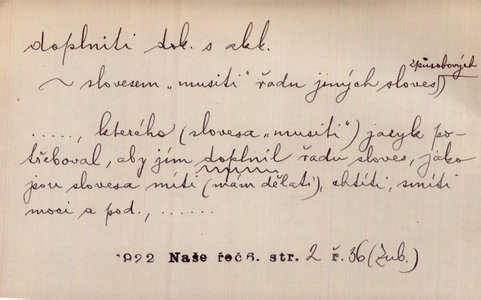 doplniti dok. s akk.
způsobových
~ slovesem „musiti" řadu jiných sloves)
....., kterého (slovesa „musiti") jazyk po-
třeboval, aby jím doplnil řadu sloves, jako
jsou slovesa míti (mám dělati), chtíti, smíti
moci a pod., ......
1922 Naše řeč 6. str. 2 ř. 36 (Zub.)